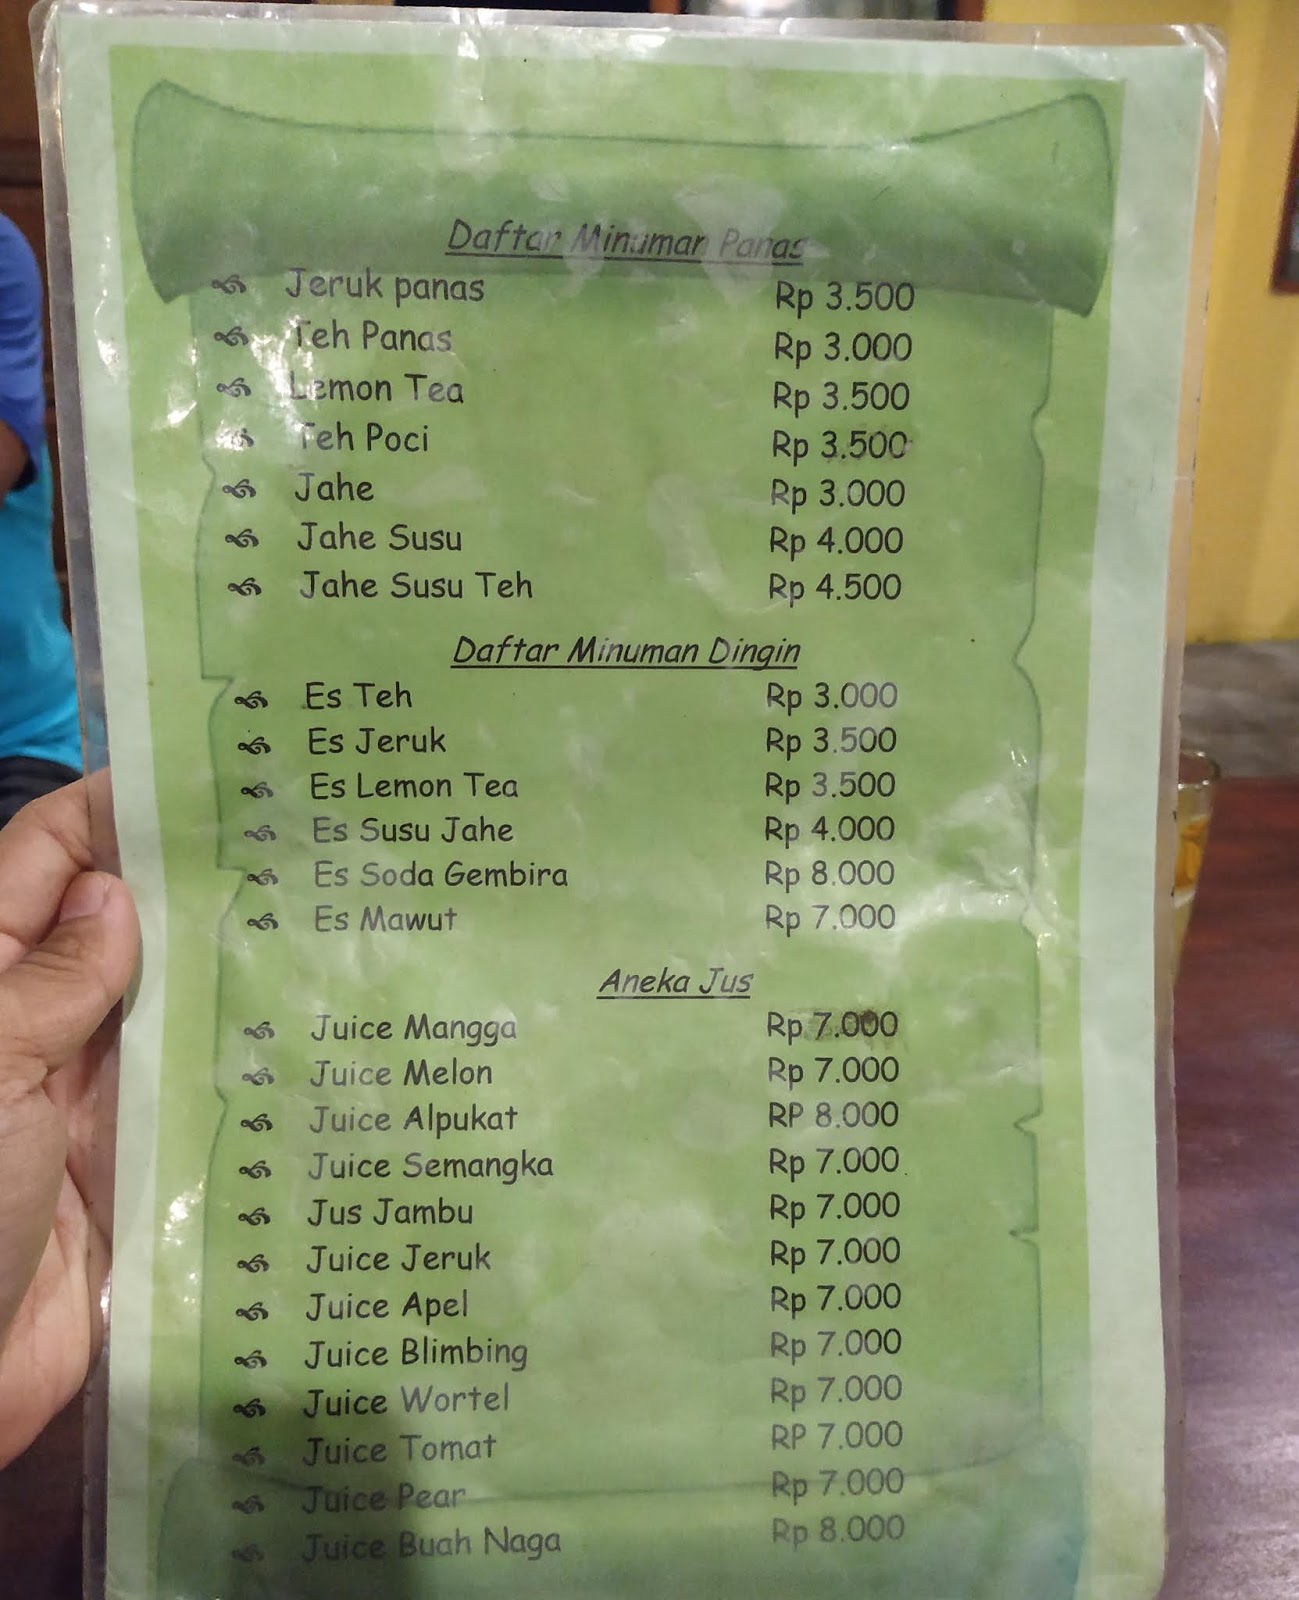 Daftar Minuman Panas
Jeruk panas Rp 3.500
Teh Panas Rp 3.000
Lemon Tea Rp 3.500
Teh Poci Rp 3.500
Jahe Rp 3.000
Jahe Susu Rp 4.000
Jahe Susu Teh Rp 4.500
Daftar Minuman Dingin
Es Teh Rp 3.000
Es Jeruk Rp 3.500
Es Lemon Tea Rp 3.500
Es Susu Jahe Rp 4.000
Es Soda Gembira Rp 8.000
Es Mawut Rp 7.000
Aneka Jus
Juice Mangga Rp 7.000
Juice Melon Rp 7.000
Juice Alpukat RP 8.000
Juice Semangka Rp 7.000
Jus Jambu Rp 7.000
Juice Jeruk Rp 7.000
Juice Apel Rp 7.000
Juice Blimbing Rp 7.000
Juice Wortel Rp 7.000
Juice Tomat RP 7.000
Juice Pear Rp 7.000
Juice Buah Naga Rp 8.000